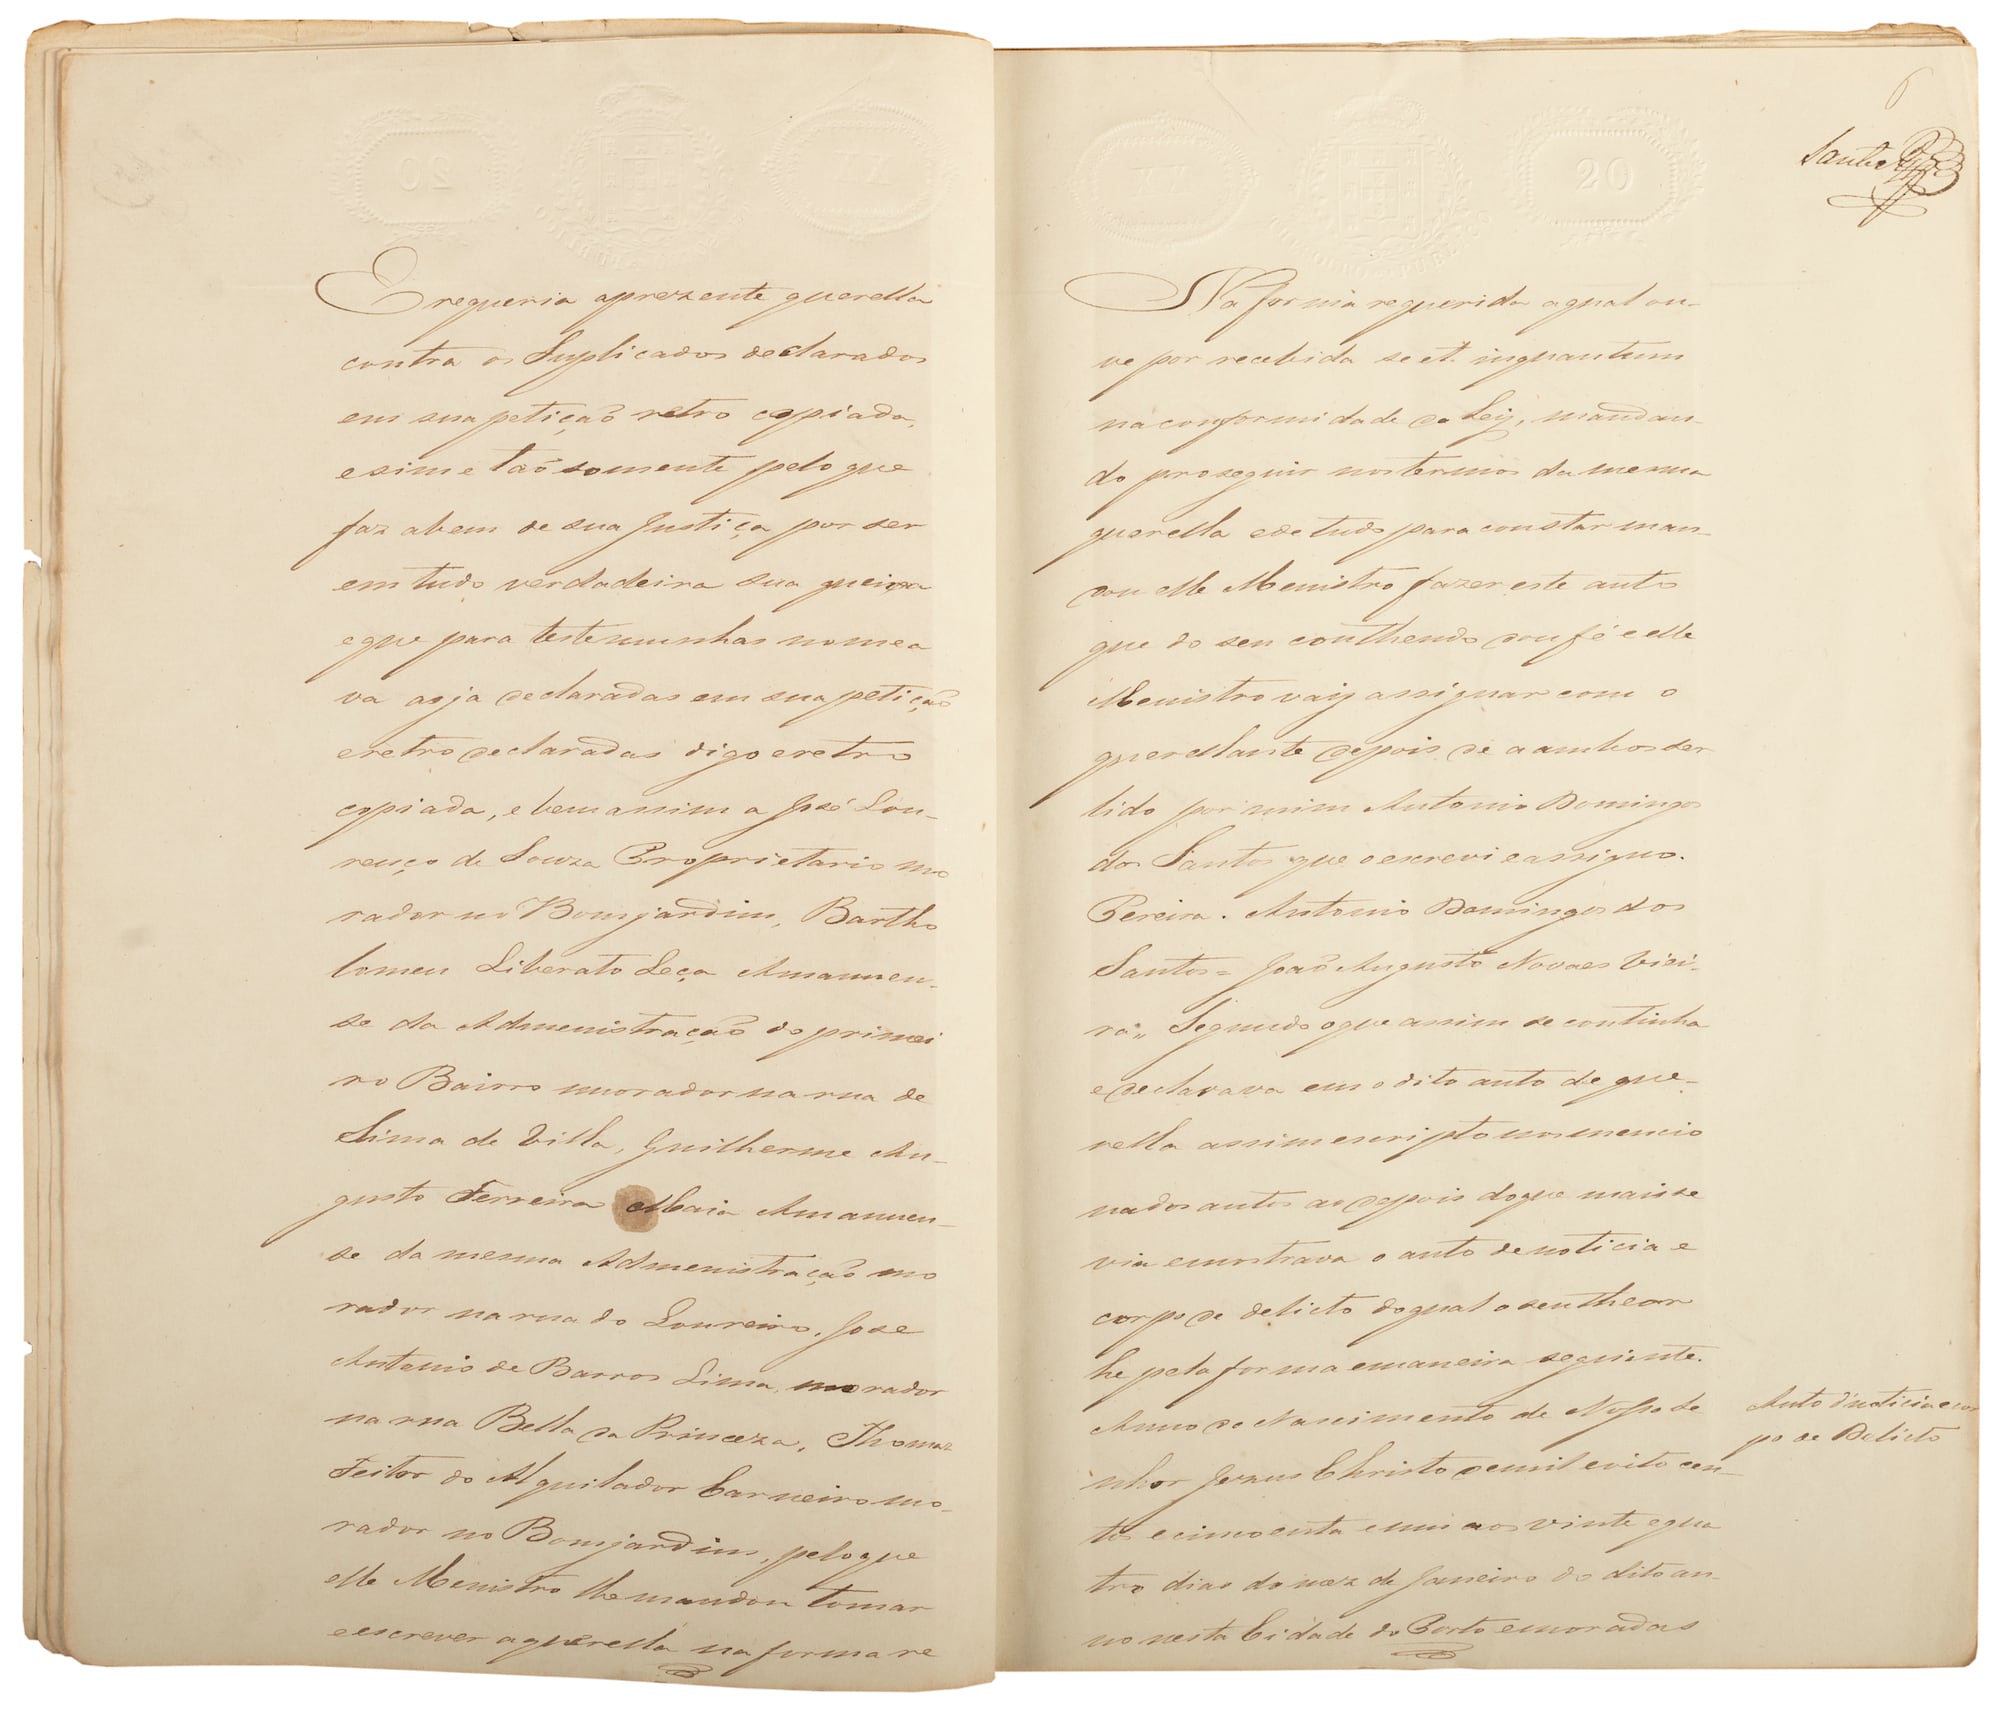 E requeria aprezente querella
contra os Suplicados declarados
em sua petiçaõ retro copiada,
e sim e taõ somente pelo que
faz abem de sua Justiça por ser
em tudo verdadeira sua queixa
eque para testemunhas nomea
va as ja declaradas em sua petiçaõ
eretro declaradas digo eretro
copiada, e bem assim a José Lou-
renço de Souza Proprietario mo
rador no Bomjardim, Bartho
lomeu Liberato Leça Amanuen-
se da Admenistraçaõ do primei
ro Bairro morador na rua de
Sima de Villa, Guilherme Au-
gusto Ferreira Maia Amanuen-
se da mesma Admenistraçaõ mo
rador na rua do Loureiro, Joze
Antonio de Barros Lima, morador
na rua Bella da Princeza, Thomaz
Feitor do Alquilador Carneiro mo-
rador no Bomjardim, pelo que
elle Menistro lhe mandou tomar
e escrever a querella na forma re
6
Santos
Na forma requerida a qual ou-
ve por recebida se et. inquantum
na conformidade da Ley, mandan-
do proseguir nos termos da mesma
querella e de tudo para constar man-
dou elle Menistro fazer este auto
que do seu conthendo dou fé e elle
Menistro vaiy assignar com o
querellante depois de a ambos ser
lido por mim Antonio Domingos
dos Santos que o escrevi e assigno.
Pereira. Antonio Domingos dos
Santos = Joaõ Augusto Novaes Viei-
ra,, Segundo o que assim se continha
e declarava em o dito auto de que-
rella assim escripto nos mencio
nados autos ao depois do que mais se
via e mostrava o auto de noticia e
corpo de delicto do qual o seu theor
he pela forma e maneira seguinte.
Anno do Nascimento de Nosso Se
nhor Jezus Christo de mil e oito cen-
tos e cincoenta e um aos vinte e qua
tro dias do mez de Janeiro do dito an-
no nesta Cidade do Porto e moradas
Auto d'noticia e cor
po de Delicto